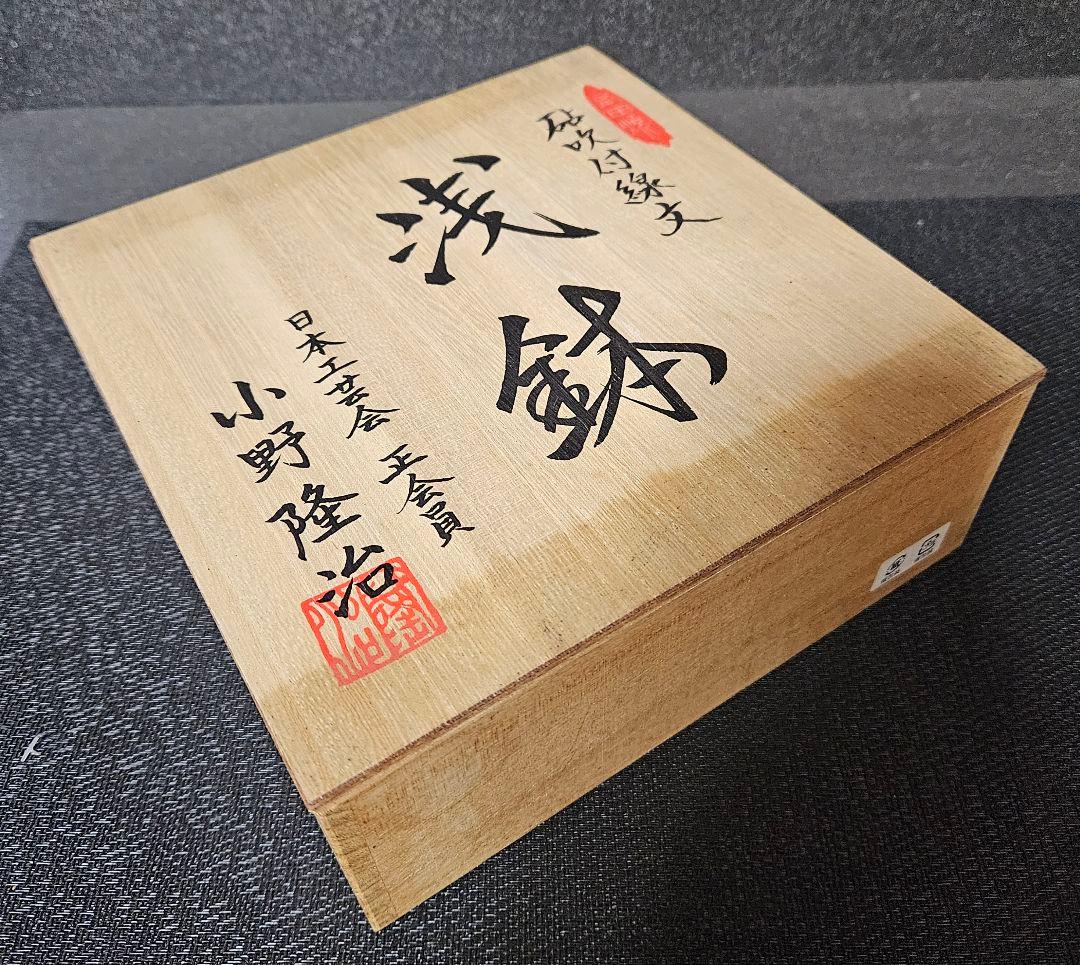 砧吹付線文
浅鉢
日本工芸会 正会員
小野隆治